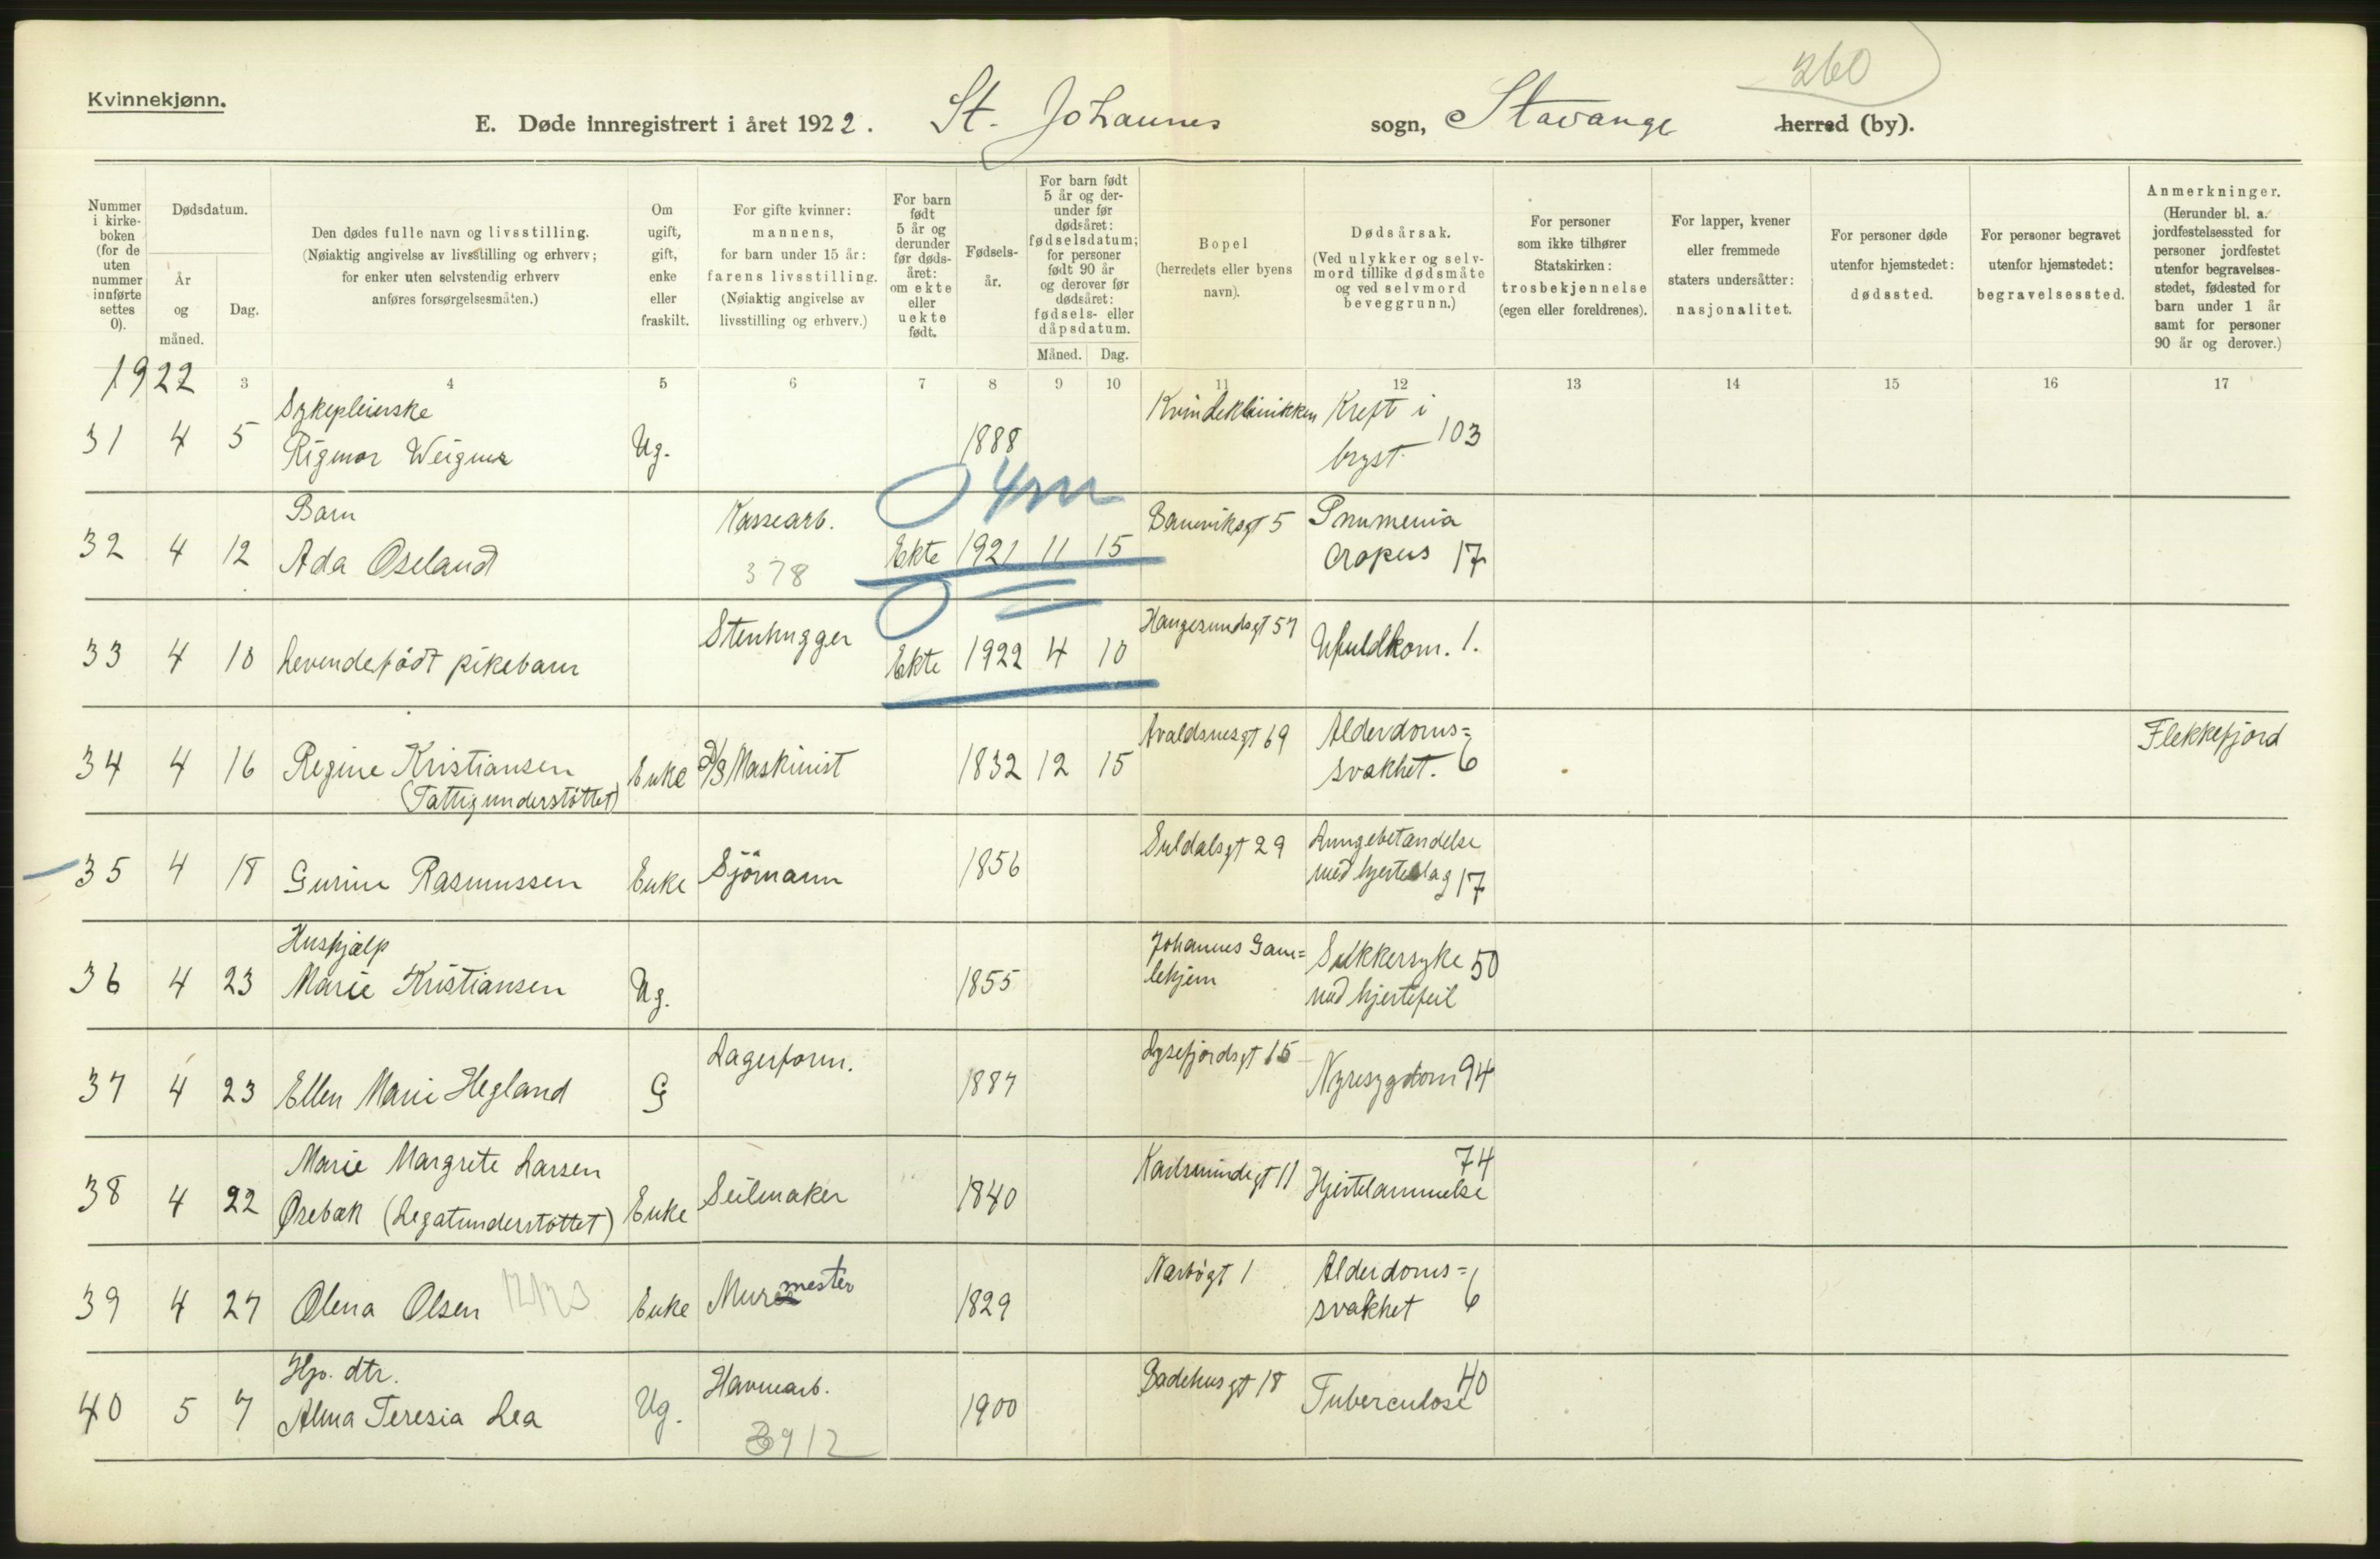 260
Kvinnekjønn.
E. Døde innregistrert i året 1922. St. Johannes sogn, Stavange herred (by).
Nummer i kirkeboken (for de uten nummer innførte settes 0).
Dødsdatum.
År og måned.
Dag.
Den dødes fulle navn og livsstilling.
(Nøiaktig angivelse av livsstilling og erhverv; for enker uten selvstendig erhverv anføres forsørgelsesmåten.)
Om ugift, gift, enke eller fraskilt.
For gifte kvinner: mannens, for barn under 15 år: farens livsstilling.
(Nøiaktig angivelse av livsstilling og erhverv.)
For barn født 5 år og derunder før dødsåret: om ekte eller uekte født.
Fødselsår.
For barn født 5 år og derunder før dødsåret: fødselsdatum; for personer født 90 år og derover før dødsåret: fødsels- eller dåpsdatum.
Måned. Dag.
Bopel (herredets eller byens navn).
Dødsårsak.
(Ved ulykker og selvmord tillike dødsmåte og ved selvmord beveggrunn.)
For personer som ikke tilhører Statskirken: trosbekjennelse (egen eller foreldrenes).
For lapper, kvener eller fremmede staters undersåtter: nasjonalitet.
For personer døde utenfor hjemstedet: dødssted.
For personer begravet utenfor hjemstedet: begravelsessted.
Anmerkninger.
(Herunder bl. a. jordfestelsessted for personer jordfestet utenfor begravelsesstedet, fødested for barn under 1 år samt for personer 90 år og derover.)
1922 3 4 5 6 7 8 9 10 11 12 13 14 15 16 17
Sykepleierske Kvindeklinikken Kreft i
31 4 5 Rigmor Ug. 1888 bryst. 103
4 m
Barn Kassearb. 5
32 4 12 Ada Oseland 378 Ekte 1921 11 15 cropus 17
Stenhugger Haugesundsgt 57
33 4 10 Levendefødt pikebarn Ekte 1922 4 10 Ufuldkom. 1.
Avaldsnesgt 69 Alderdoms= Flekkefjord
34 4 16 Regine Kristiansen Enke D/S Maskinist 1832 12 15 svakhet. 6
(Fattigunderstöttet)
Suldalsgt 29 Lungebetandelse
35 4 18 Gurine Rasmussen Enke Sjömann 1856 med hjerteslag 17
Hushjælp Johannes Gam= Sukkersyke 50
36 4 23 Marie Kristiansen Ug. 1855 lehjem med hjertefeil
Lagerform. Lysefjordsgt 15
37 4 23 Ellen Marie Hegland G 1887 Nyresygdom 94
Marie Margrete Larsen Karlsmindegt 11 74
38 4 22 Øsebak (Legatunderstøttet) Enke Seilmaker 1840 Hjertelammelse
Nærbøgt 1 Alderdoms=
39 4 27 Olena Olsen Enke Murermester 1829 svakhet 6
Hjv. dtr. Havnearb. Badehusgt 18 40
40 5 7 Alma Teresia Lea Ug. 3912 1900 Tuberculose